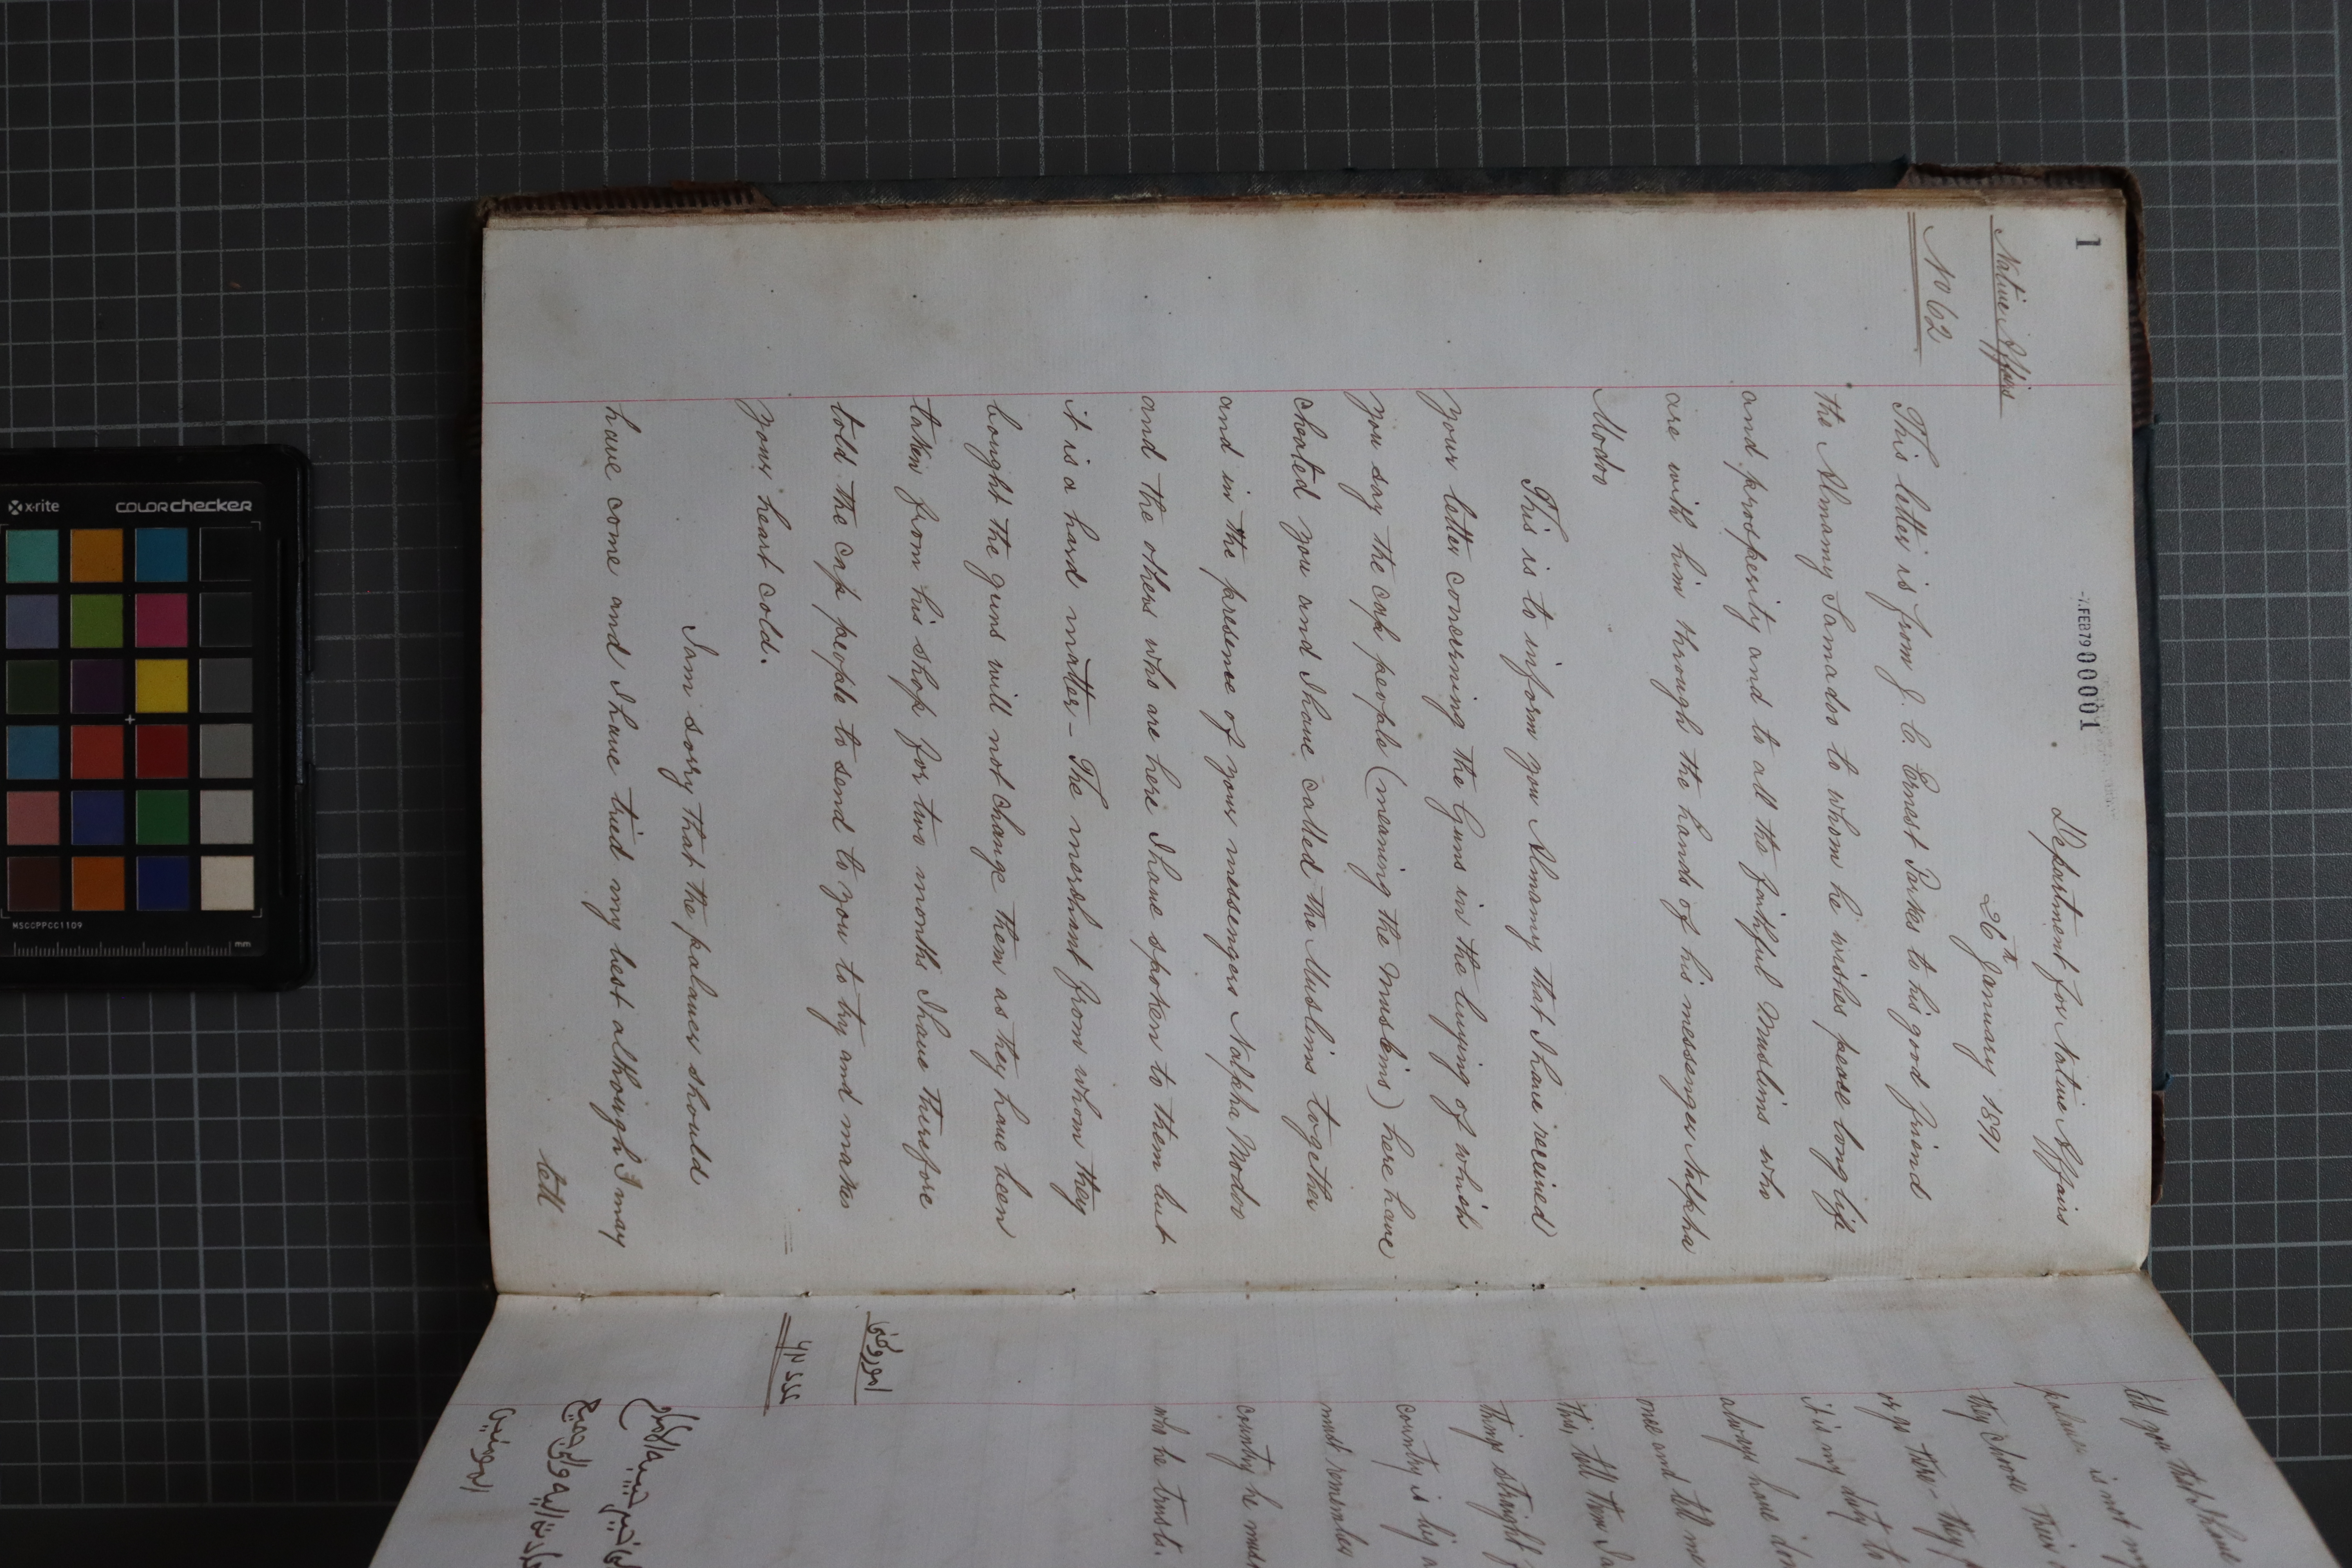 1
-7.FEB79 00001
Department for Native Affairs
26th January 1891
Native Affairs
No 62
This letter is from J. C. Ernest Parkes to his good friend
the Almamy Samadoo to whom he wishes peace long life
and prosperity and to all the faithful Muslims who
are with him through the hands of his messenger Nalpha
Modoo
This is to inform you Almamy that I have received
your letter concerning the Guns in the buying of which
you say the cap people (meaning the Muslims) here have
cheated you and I have called the Muslims together
and in the presence of your messengers Nalpha Modoo
and the others who are here I have spoken to them but
it is a hard matter - The merchant from whom they
bought the guns will not change them as they have been
taken from his shop for two months I have therefore
told the cap people to send to you to try and make
your heart cold.
I am sorry that the palaver should
have come and I have tried my best although I may
tell
tell you that I have
palaver is not m
they choose their
or go there - they
it is my duty to
always have don
me and tell me
this, tell them I a
things straight f
country is big a
must remember
country he mus
who he trusts.
x-rite colorchecker
MSCCPPCC1109
mm